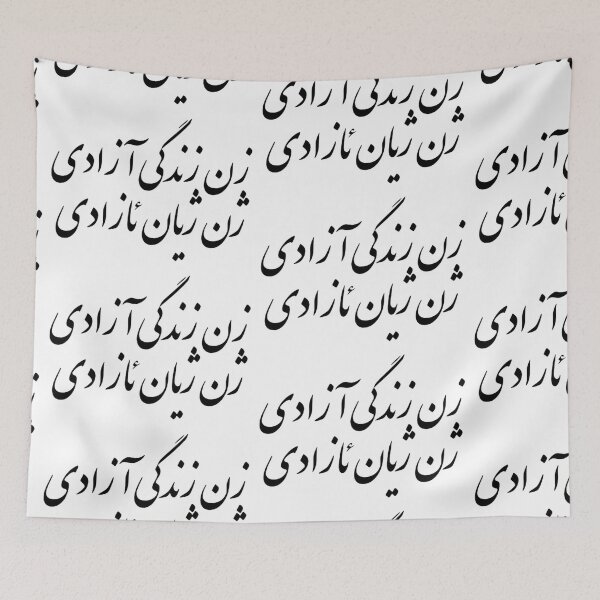 زن زندگی آزادی
ژن ژیان ئازادی
آزادی
زن زندگی آزادی
ئازادی
ژن ژیان ئازادی
زن زندگی آزادی
ژن ژیان ئازادی
آزادی
زن زندگی آزادی
ئازادی
ژن ژیان ئازادی
زن زندگی آزادی
ژن ژیان ئازادی
آزادی
زن زندگی آزادی